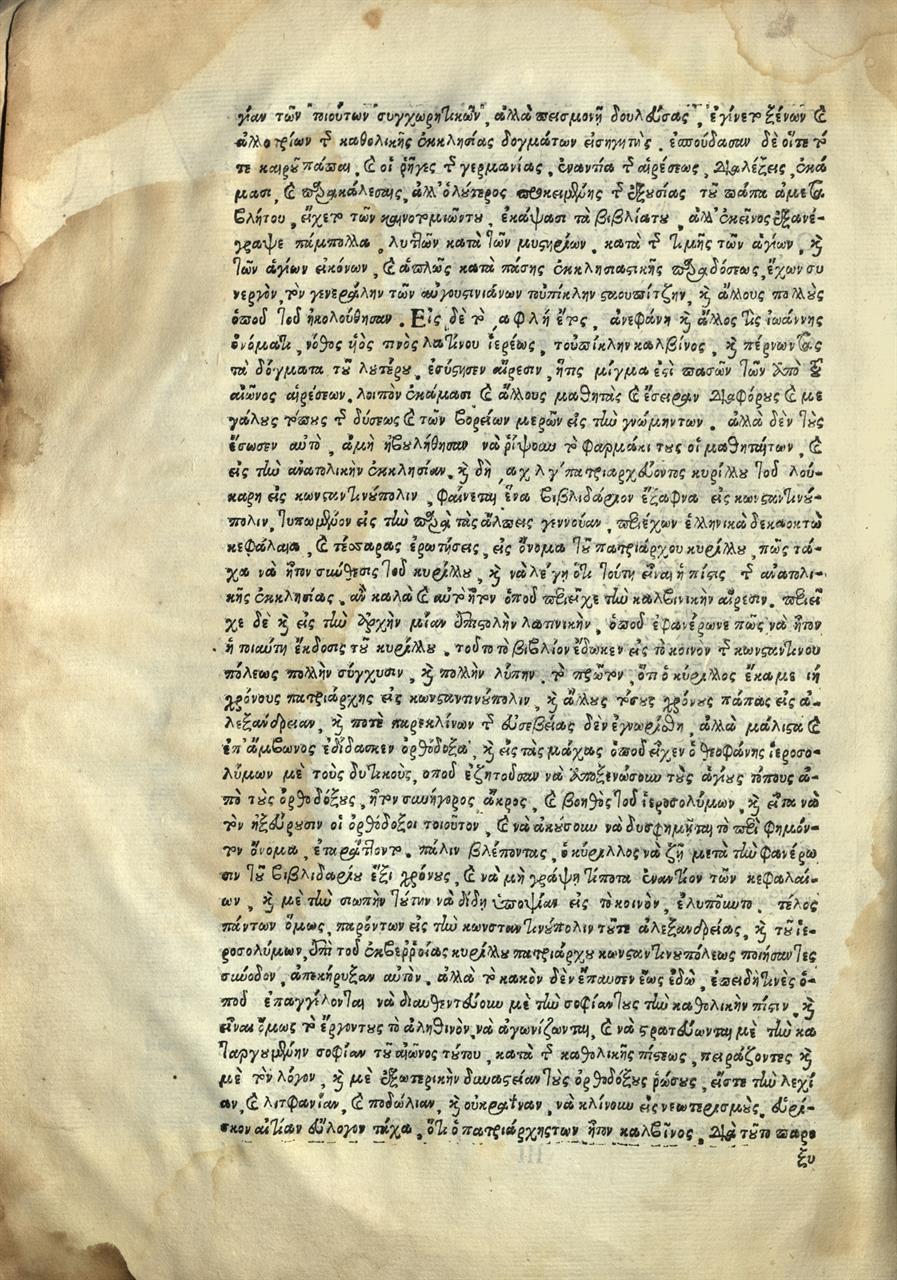 γίαν τῶν τοιούτων συγχωρητικῶν, ἀλλὰ πεισμονῇ δουλεύσας, ἐγίνετο ξένων καὶ
ἀλλοτρίων τῆς καθολικῆς ἐκκλησίας δογμάτων εἰσηγητὴς, ἐσπούδασαν δὲ οἵτε τότε
τε καιροῦ πάπαι, καὶ οἱ ῥῆγες τῆς γερμανίας, ἐναντία τῆς αἱρέσεως, διαλέξεις, ἐκά-
μασι, καὶ παρακάλεσαις, ἀλλ' ὁ λούτερος προκειμένης τῆς ἐξουσίας τοῦ πάπα ἀμετα
βλήτου, εἴχετο τῶν καινοτομιῶντου, ἐκάψασι τὰ βιβλίατου, ἀλλ' ἐκεῖνος ἐξανέ-
γραψε πάμπολλα, λυττῶν κατὰ τῶν μυστηρίων, κατὰ τῆς τιμῆς τῶν ἁγίων, καὶ
τῶν ἁγίων εἰκόνων, καὶ ἁπλῶς κατὰ πάσης ἐκκλησιαστικῆς παραδόσεως, ἔχων συ
νεργὸν, τὸν γενεράλην τῶν αὐγουστινιάνων τοὐπίκλην σταουπίτζην, καὶ ἄλλους πολλοὺς
ὁποῦ τοῦ ἠκολούθησαν. Εἰς δὲ τὸ ͵αφλή ἔτος, ἀνεφάνη καὶ ἄλλος τὶς ἰωάννης
ὀνόματι, νόθος ὑιὸς τινὸς λατίνου ἱερέως, τοὐπίκλην καλβίνος, καὶ πέρνωντας
τὰ δόγματα τοῦ λουτέρου, ἐσύστησεν αἵρεσιν, ἥτις μίγμα ἐστὶ πασῶν τῶν ἀπὸ τοῦ
αἰῶνος αἱρέσεων. λοιπὸν ἐκάμασι καὶ ἄλλους μαθητὰς καὶ ἔσειραν διαφόρους καὶ με
γάλους τόπους τῆς δύσεως καὶ τῶν βορείων μερῶν εἰς τὴν γνώμηντων. ἀλλὰ δὲν τοὺς
ἔσωσεν αὐτὸ, ἀμὴ ἠβουλήθησαν νὰ ῥίψουν τὸ φαρμάκι τους οἱ μαθηταίτων, καὶ
εἰς τὴν ἀνατολικὴν ἐκκλησίαν. καὶ δὴ ͵αχλγ' πατριαρχεύοντος κυρίλλου τοῦ λού-
καρη εἰς κωνσταντινούπολιν, φαίνεται ἕνα βιβλιδάριον ἔξαφνα εἰς κωνσταντινού-
πολιν, τυπωμένον εἰς τὴν παρὰ τὰς ἄλπεις γεννούαν, περιέχων ἑλληνικὰ δεκαοκτὼ
κεφάλαια, καὶ τέσσαρας ἐρωτήσεις, εἰς ὄνομα τοῦ πατριάρχου κυρίλλου, πῶς τά-
χα νὰ ἦτον σύνθεσις τοῦ κυρίλλου, καὶ νὰ λέγη ὅτι τούτη εἶναι ἡ πίστις τῆς ἀνατολι-
κῆς ἐκκλησίας. ἂν καλὰ καὶ αὐτὸ ἦτον ὁποῦ περιεῖχε τὴν καλβινικὴν αἵρεσιν. περιεῖ
χε δὲ καὶ εἰς τὴν ἀρχὴν μίαν ἐπιστολὴν λατινικὴν, ὁποῦ ἐφανέρωνε πῶς νὰ ἦτον
ἡ τοιαύτη ἔκδοσις τοῦ κυρίλλου. τοῦτο τὸ βιβλίον ἔδωκεν εἰς τὸ κοινὸν τῆς κωνσταντίνου
πόλεως πολλὴν σύγχυσιν, καὶ πολλὴν λύπην. τὸ πρῶτον, ὅτι ὁ κύριλλος ἔκαμε ιη
χρόνους πατριάρχης εἰς κωνσταντινούπολιν, καὶ ἄλλους τόσους χρόνους πάπας εἰς ἀ-
λεξάνδρειαν, καὶ ποτὲ παρεκλίνων τῆς εὐσεβείας δὲν ἐγνωρίσθη, ἀλλὰ μάλιστα καὶ
ἐπ' ἄμβωνος ἐδίδασκεν ὀρθόδοξα, καὶ εἰς τὰς μάχας ὁποῦ εἶχεν ὁ θεοφάνης ἱεροσο-
λύμων μὲ τοὺς δυτικοὺς, ὁποῦ ἐζητοῦσαν νὰ ἀποξενώσουν τοὺς ἁγίους τόπους ἀ-
πὸ τοὺς ὀρθοδόξους, ἦτον συνήγορος ἄκρος, καὶ βοηθὸς τοῦ ἱεροσολύμων, καὶ εἶτα νὰ
τὸν ἠξεύρουσιν οἱ ὀρθόδοξοι τοιοῦτον, καὶ νὰ ἀκούσουν νὰ δυσφημῆται τὸ περιφημόν-
τον ὄνομα, ἐταράττοντο. πάλιν βλέποντας, ὁ κύριλλος νὰ ζῇ μετὰ τὴν φανέρω
σιν τοῦ βιβλιδαρίου ἕξι χρόνους, καὶ νὰ μὴ γράψη τίποτα ἐναντίον τῶν κεφαλαί-
ων, καὶ μὲ τὴν σιωπὴν τούτην νὰ δίδη ὑποψίαν εἰς τὸ κοινὸν, ἐλυποῦντο. τέλος
πάντων ὅμως, παρόντων εἰς τὴν κωνσταντινούπολιν τοῦτε ἀλεξανδρείας, καὶ τοῦ ἱε-
ροσολύμων, ἐπὶ τοῦ ἐκ βερροίας κυρίλλου πατριάρχου κωνσταντινουπόλεως ποιήσαντες
σύνοδον, ἀπεκήρυξαν αὐτόν. ἀλλὰ τὸ κακὸν δὲν ἔπαυσεν ἕως ἐδῶ, ἐπειδὴ τινὲς ὁ-
ποῦ ἐπαγγέλονται νὰ διαυθεντεύουν μὲ τὴν σοφίαν τους τὴν καθολικὴν πίστιν, καὶ
εἶναι ὅμως τὸ ἔργοντους τὸ ἀληθινὸν, νὰ ἀγωνίζωνται, καὶ νὰ στρατεύωνται μὲ τὴν κα
ταργουμένην σοφίαν τοῦ αἰῶνος τούτου, κατὰ τῆς καθολικῆς πίστεως, πειράζοντες καὶ
μὲ τὸν λόγον, καὶ μὲ ἐξωτερικὴν δυναστείαν τοὺς ὀρθοδόξους ῥώσους, εἴστε τὴν λεχί
αν, καὶ λιτφανίαν, καὶ ποδώλιαν, καὶ οὐκραΐναν, νὰ κλίνουν εἰς νεωτερισμοὺς, εὑρί-
σκον αἰτίαν εὔλογον τάχα, ὅτι ὁ πατριάρχηςτων ἦτον καλβῖνος, διὰ τοῦτο παρο
ξυ